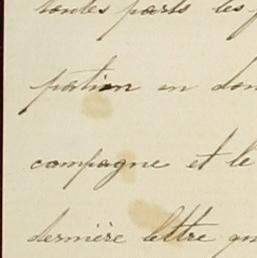 toutes parts les
partion en don
campagne et le
dernière lettre qu